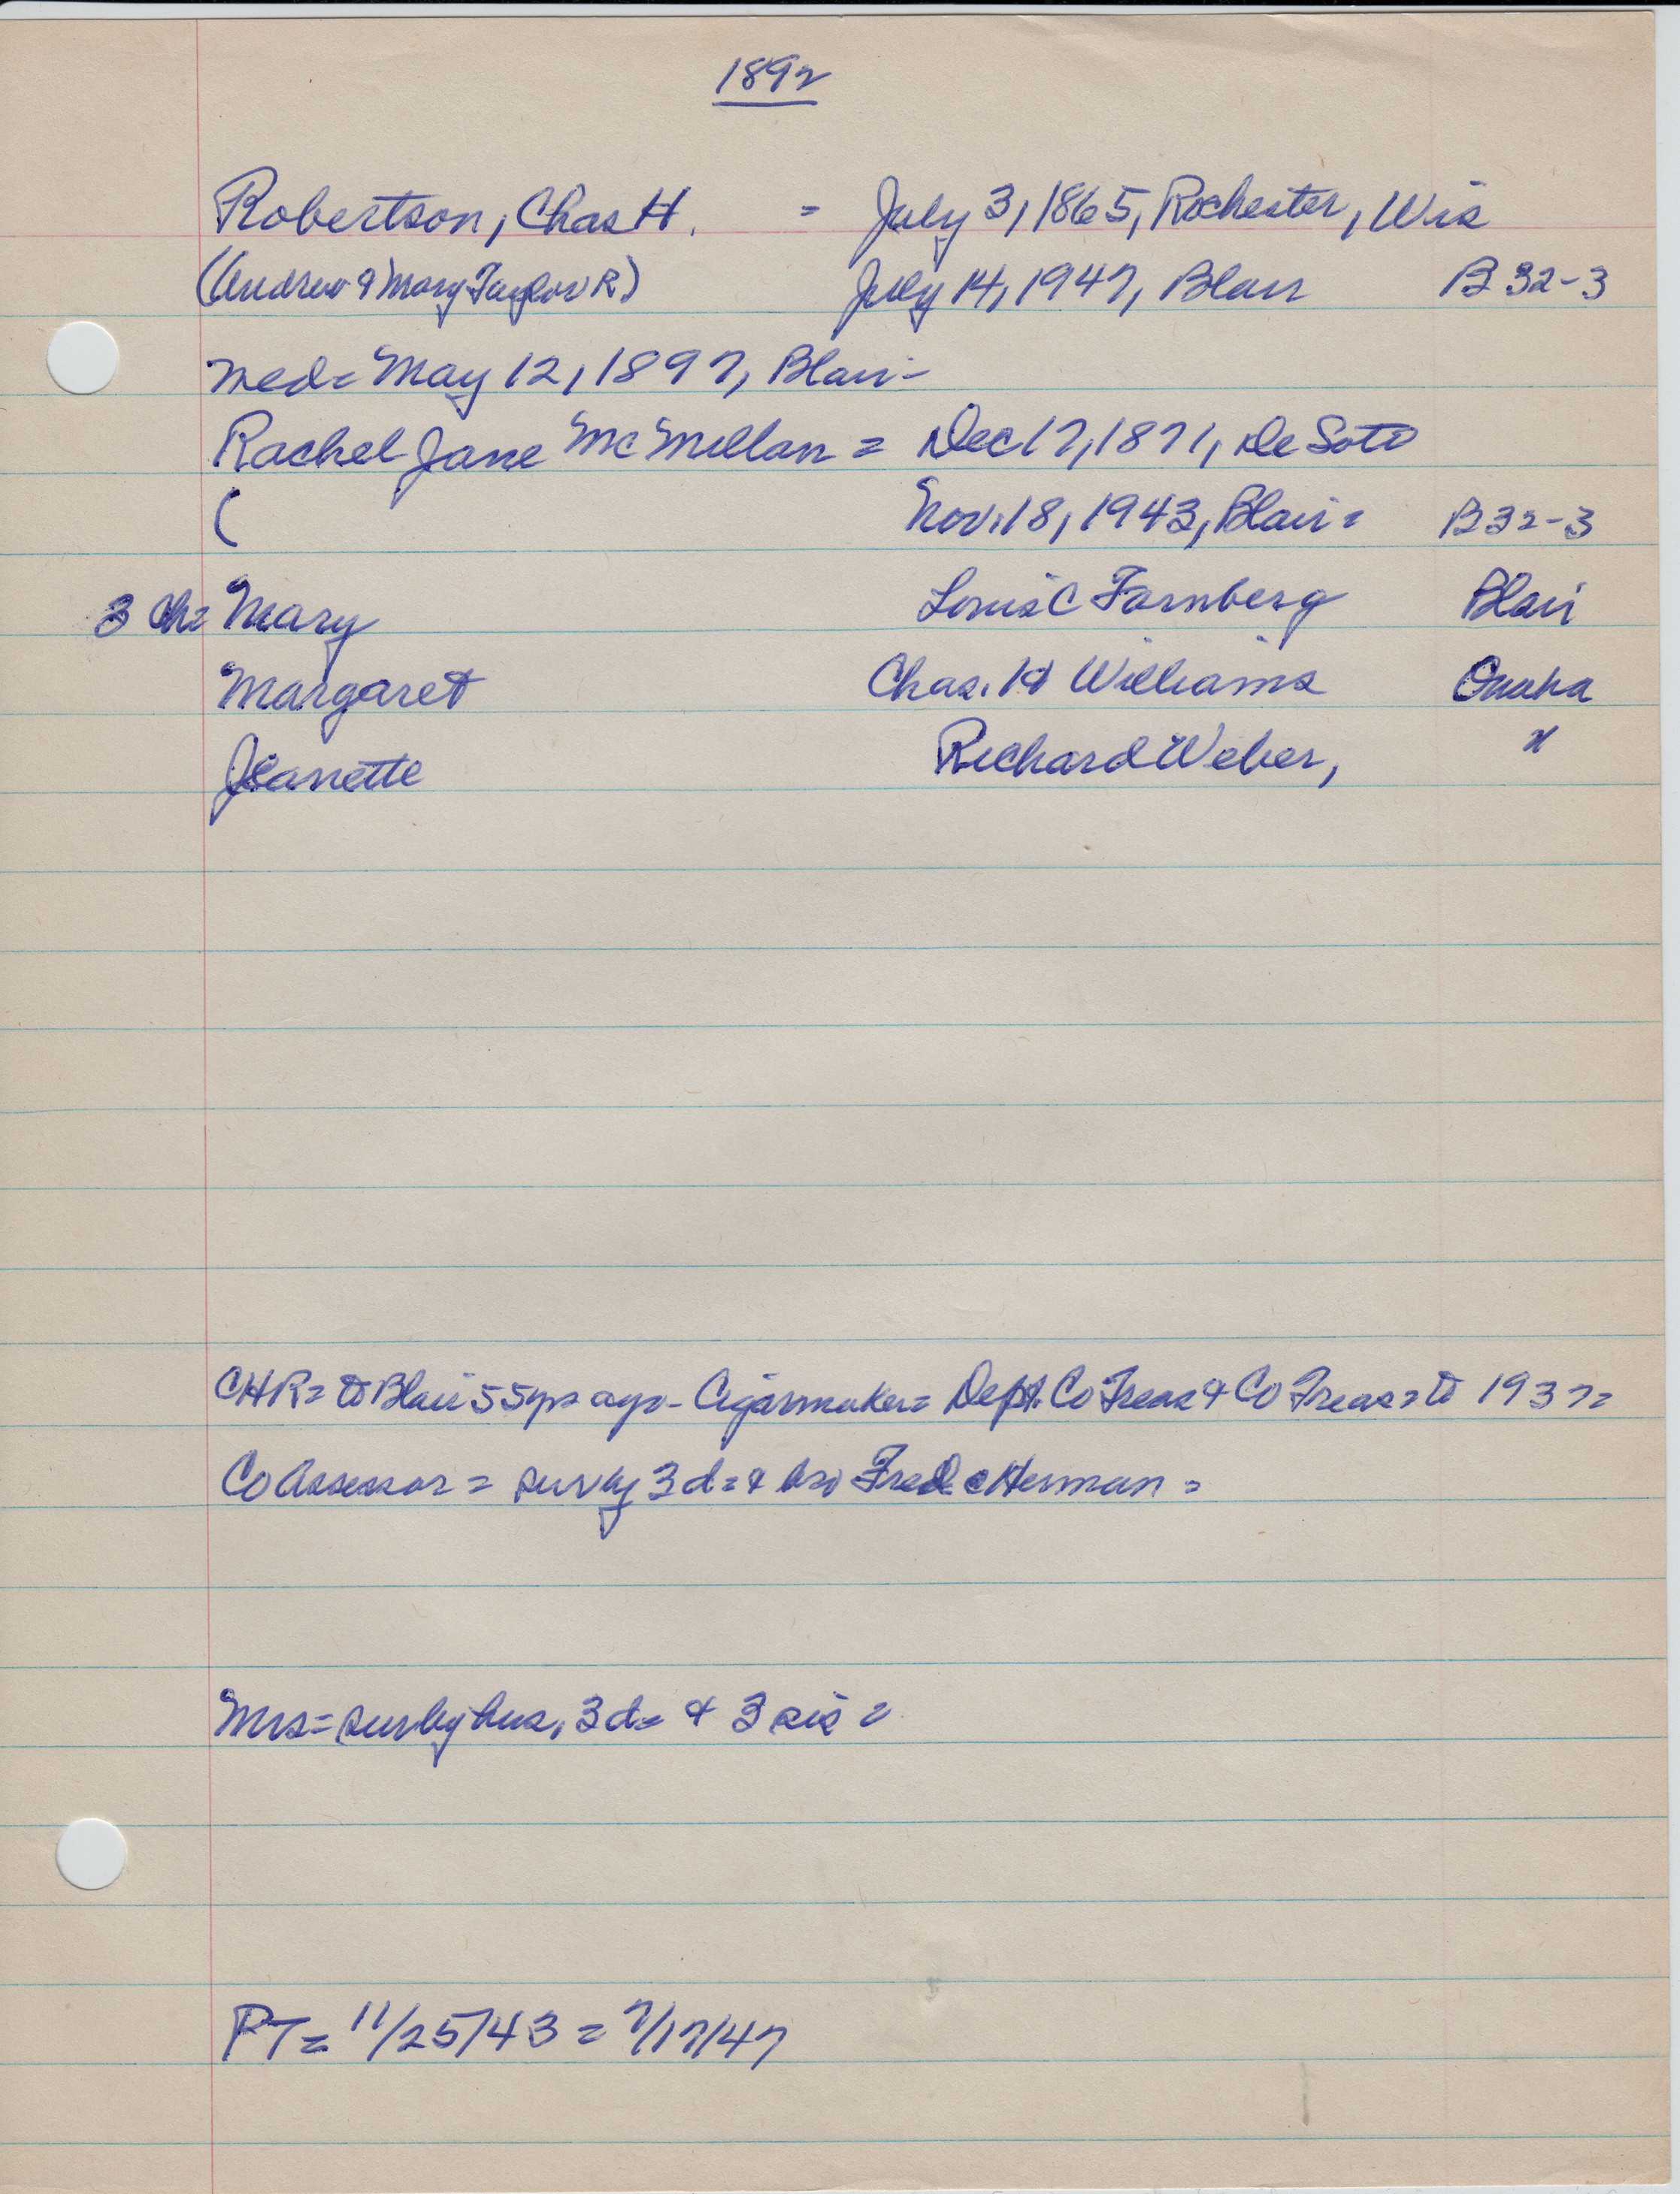 1892
Robertson, Chas H. = July 3, 1865, Rochester, Wis
(Andrew & Mary Taylor R) July 14, 1947, Blair B 32-3
med= May 12, 1897, Blair-
Rachel Jane McMillan = Dec 17, 1871, De Soto
( Nov. 18, 1943, Blair= B32-3
3 Ch= Mary Louis C Farnberg Blair
Margaret Chas. H Williams Omaha
Jeanette Richard Weber, "
CHR= to Blair 55 yrs ago- Cigarmaker= Dept. Co Treas & Co Treas= to 1937=
Co Assessor = surv by 3 d= & bro Fred & Herman =
Mrs= surv by hus, 3 d= & 3 sis =
PT= 11/25/43 = 7/17/47